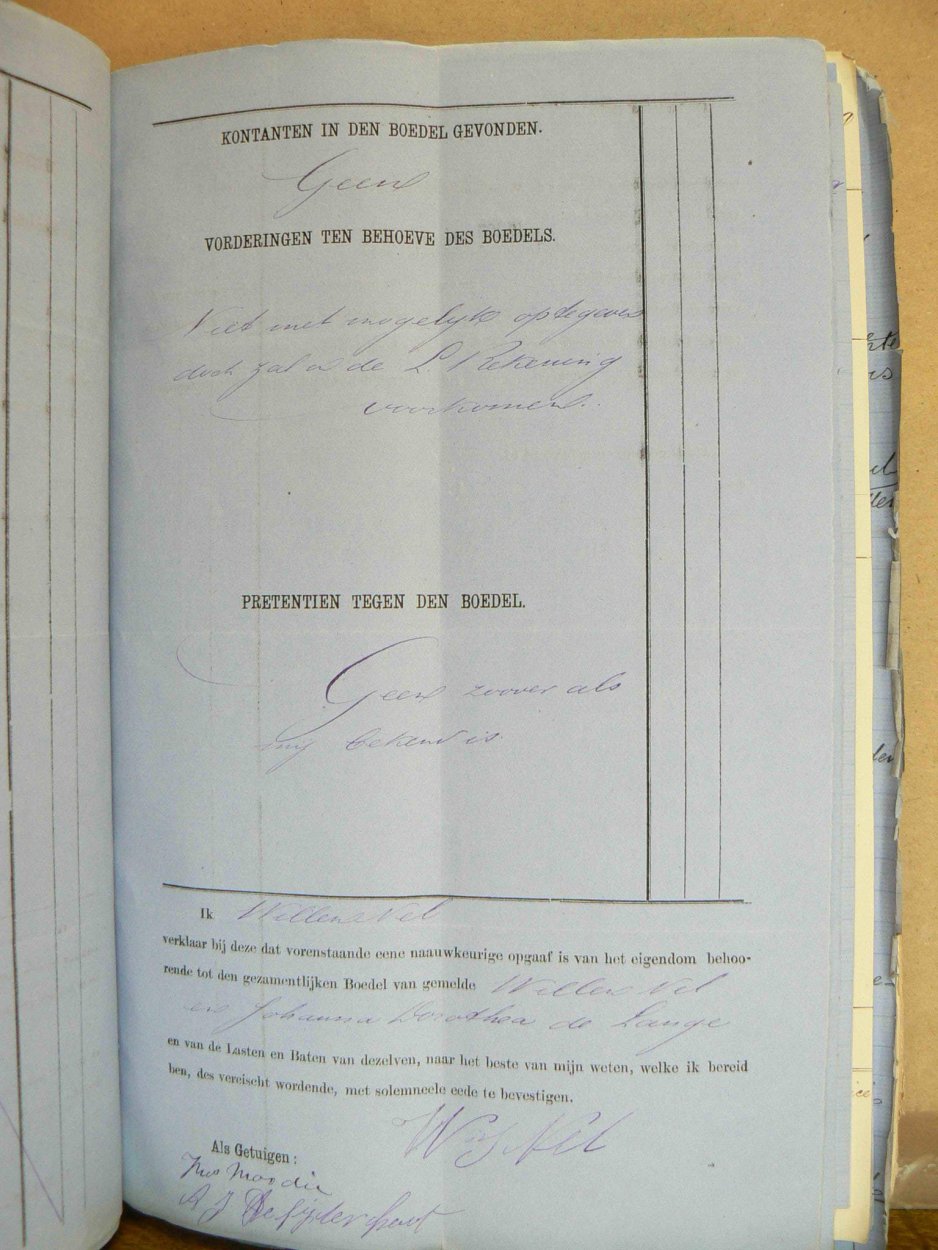 KONTANTEN IN DEN BOEDEL GEVONDEN.
Geen
VORDERINGEN TEN BEHOEVE DES BOEDELS.
Niet met mogelyk optegeven
doch zal in de L Rekening
voorkomen.
PRETENTIEN TEGEN DEN BOEDEL.
Geen zoover als
my bekend is
Ik Willem Nel
verklaar bij deze dat vorenstaande eene naauwkeurige opgaaf is van het eigendom behoo-
rende tot den gezamentlijken Boedel van gemelde Willem Nel
en Johanna Dorothea de Lange
en van de Lasten en Baten van dezelven, naar het beste van mijn weten, welke ik bereid
ben, des vereischt wordende, met solemneele eede te bevestigen.
Nel
Als Getuigen:
Moodie
A J